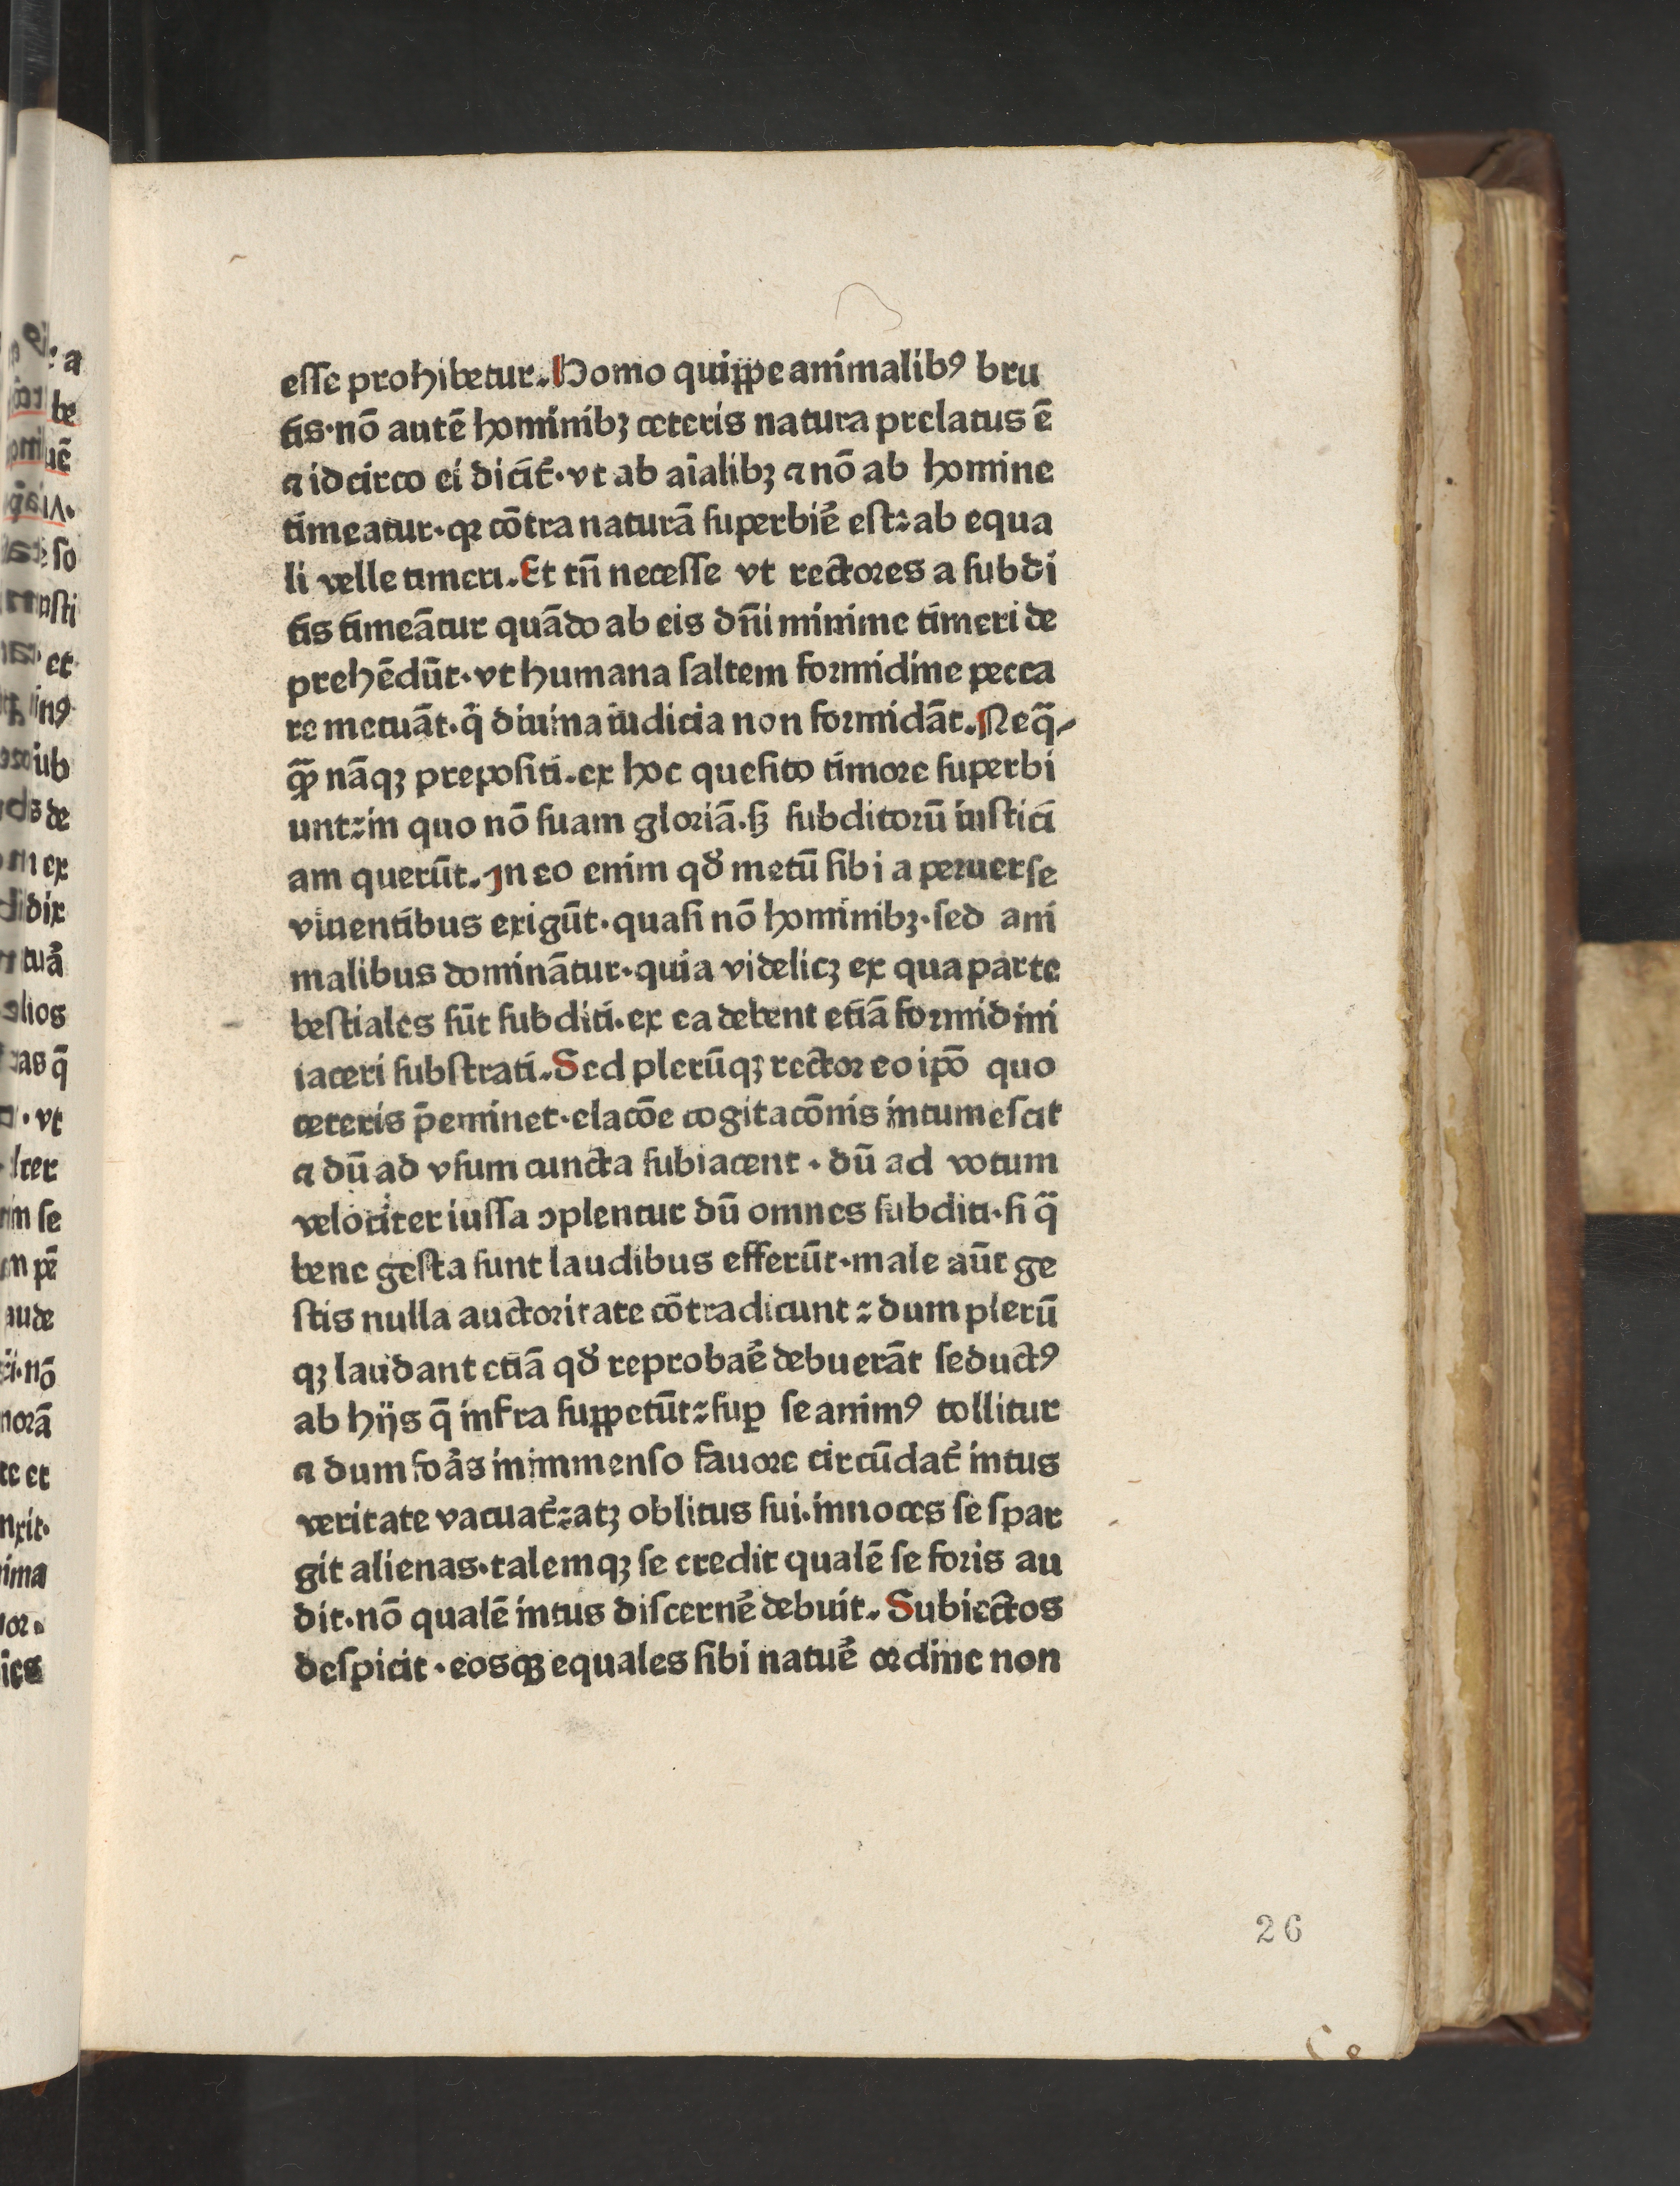 esse prohibetur. Homo quippe animalibꝰ bru
tis·nō autē hominibꝫ ceteris natura prelatus ē
⁊ idcirco ei dicit᷑·vt ab aīalibꝫ ⁊ nō ab homine
timeatur·qꝛ cōtra naturā superbiē est:ab equa
li velle timeri. Et tn̄ necesse vt rectores a subdi
tis timeātur quādo ab eis dn̄i minime timeri de
prehēdūt·vt humana saltem formidine pecca
re metuāt·q̄ diuina iudicia non formidāt. Neq̄⸗
qꝫ nāqꝫ prepositi.ex hoc quesito timore superbi
unt:in quo nō suam gloriā.sꝫ subditorū iustici
am querūt. In eo enim qđ metū sibi a peruerse
viuentibus exigūt·quasi nō hominibꝫ·sed ani
malibus dominātur·quia videlicꝫ ex qua parte
bestiales sūt subditi·ex ea debent etiā formidini
iaceri substrati. Sed plerūqꝫ rector eo ipō quo
ceteris p̄eminet·elacōe cogitacōnis intumescit
⁊ dū ad vsum cuncta subiacent · dū ad votum
velociter iussa ↄplentur dū omnes subditi·si q̄
bene gesta sunt laudibus efferūt·male aūt ge
stis nulla auctoritate cōtradicunt : dum plerū
qꝫ laudant etiā qđ reprobaē debuerāt seductꝰ
ab hijs q̄ infra suppetūt:suꝑ se animꝰ tollitur
⁊ dum foās inimmenso fauore circūdat᷑ intus
veritate vacuat᷑:atꝫ oblitus sui.innoces se spar
git alienas·talemqꝫ se credit qualē se foris au
dit·nō qualē intus discernē debuit. Subiectos
despicit·eosqꝫ equales sibi natuē ordine non
26